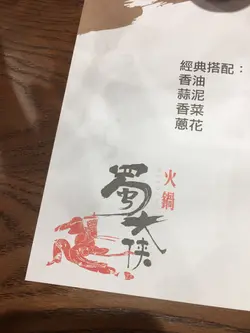 經典搭配：
香油
蒜泥
香菜
蔥花
火鍋
蜀大侠